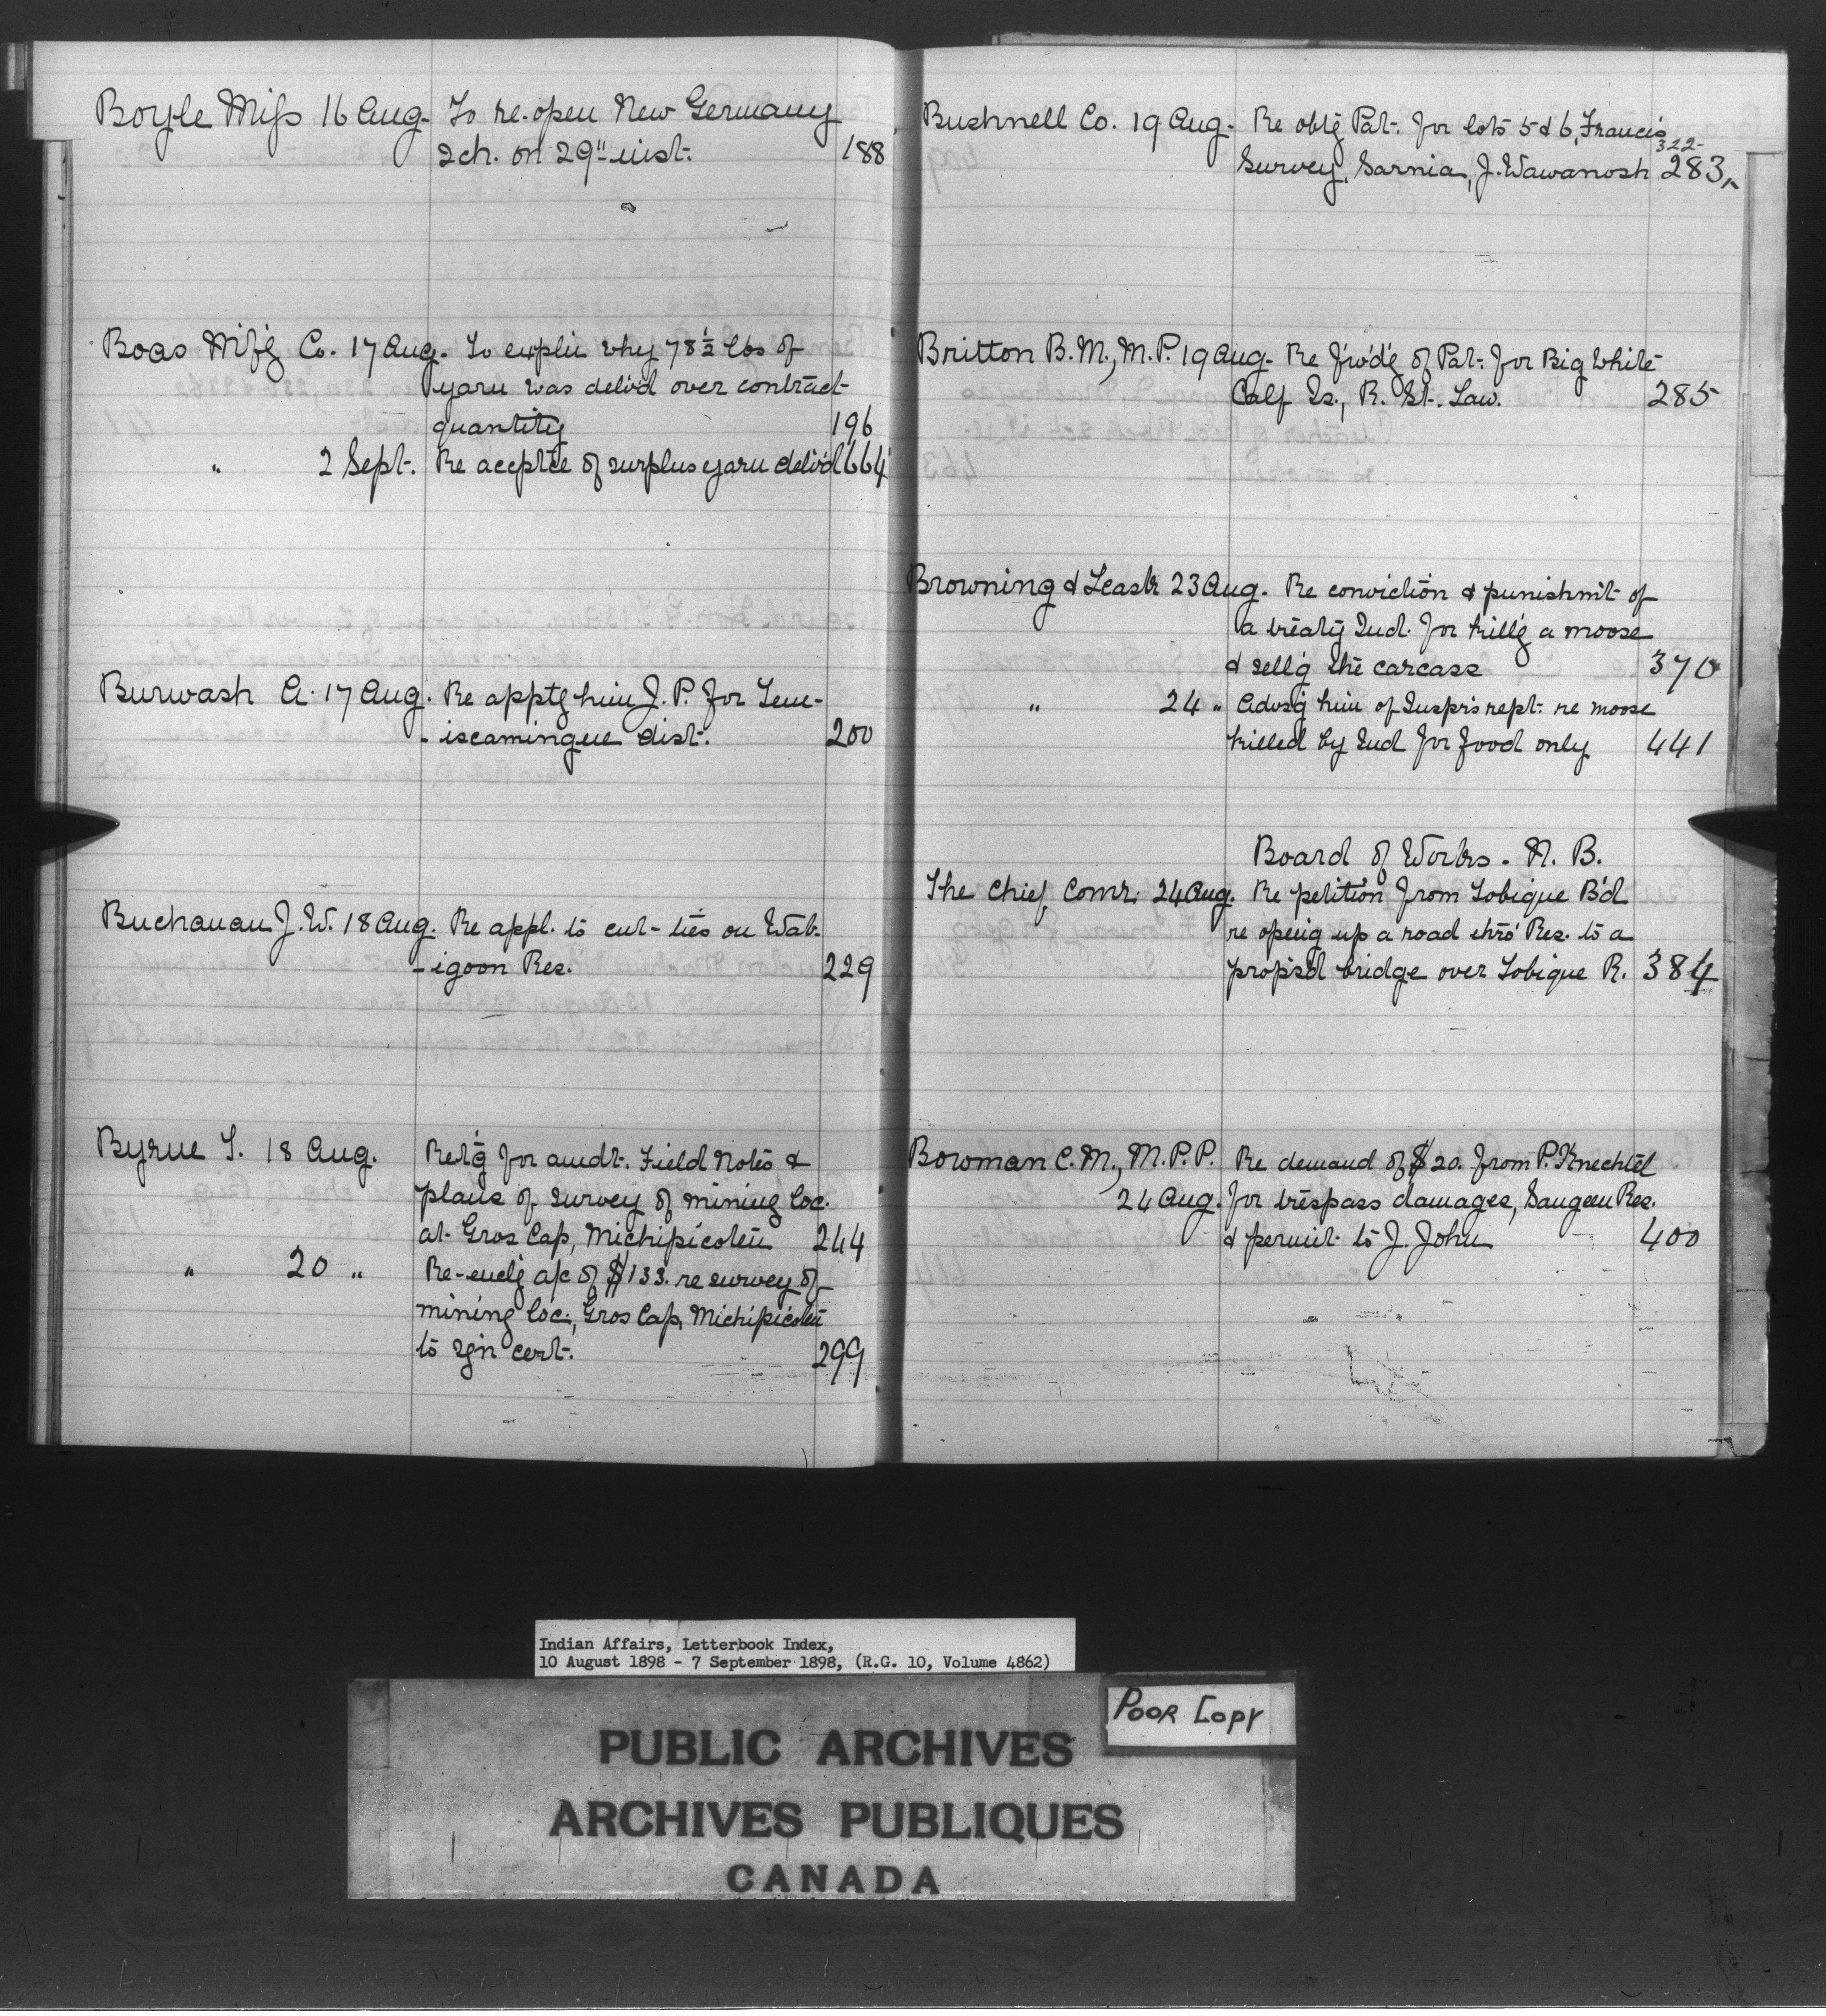 Boyle Miss 16 Aug. To re-open New Germany
sch. on 29" inst. 188
Boas Mf'g Co. 17 Aug. To explin why 78½ lbs of
yarn was deliv'd over contract
quantity 196
" 2 Sept. Re accptce of surplus yarn deliv'd 664
Burwash A. 17 Aug. Re apptg him J.P. for Tem-
-iscamingue dist. 200
Buchanan J.W. 18 Aug. Re appl. to cut ties on Wab-
-igoon Res. 229
Byrne T. 18 Aug. Ret'g for amdt. Field Notes &
plans of survey of mining loc.
at Gros Cap, Michipicoten 244
" 20 " Re-enclg a/c of $133. re survey of
mining loc., Gros Cap, Michipicoten
to sgn cert. 299
Bushnell Co. 19 Aug. Re obtg Pat. for lots 5 & 6, Francis
322-
Survey, Sarnia, J. Wawanosh 283,-
Britton B.M., M.P. 19 Aug. Re f'wd'g of Pat. for Big White
Calf Is., R. St. Law. 285
Browning & Leask 23 Aug. Re conviction & punishm't of
a treaty Ind. for kill'g a moose
& sell'g the carcass 370
" 24 " Advsg him of Inspr's rept. re moose
killed by Ind for food only 441
Board of Works. N.B.
The Chief Comr. 24 Aug. Re petition from Tobique B'd
re open'g up a road thro' Res. to a
propos'd bridge over Tobique R. 384
Bowman C.M., M.P.P. Re demand of $20. from P. Knechtel
24 Aug. for trespass damages, Saugeen Res.
& permit to J. John 400
Indian Affairs, Letterbook Index,
10 August 1898 - 7 September 1898, (R.G. 10, Volume 4862)
POOR COPY
PUBLIC ARCHIVES
ARCHIVES PUBLIQUES
CANADA